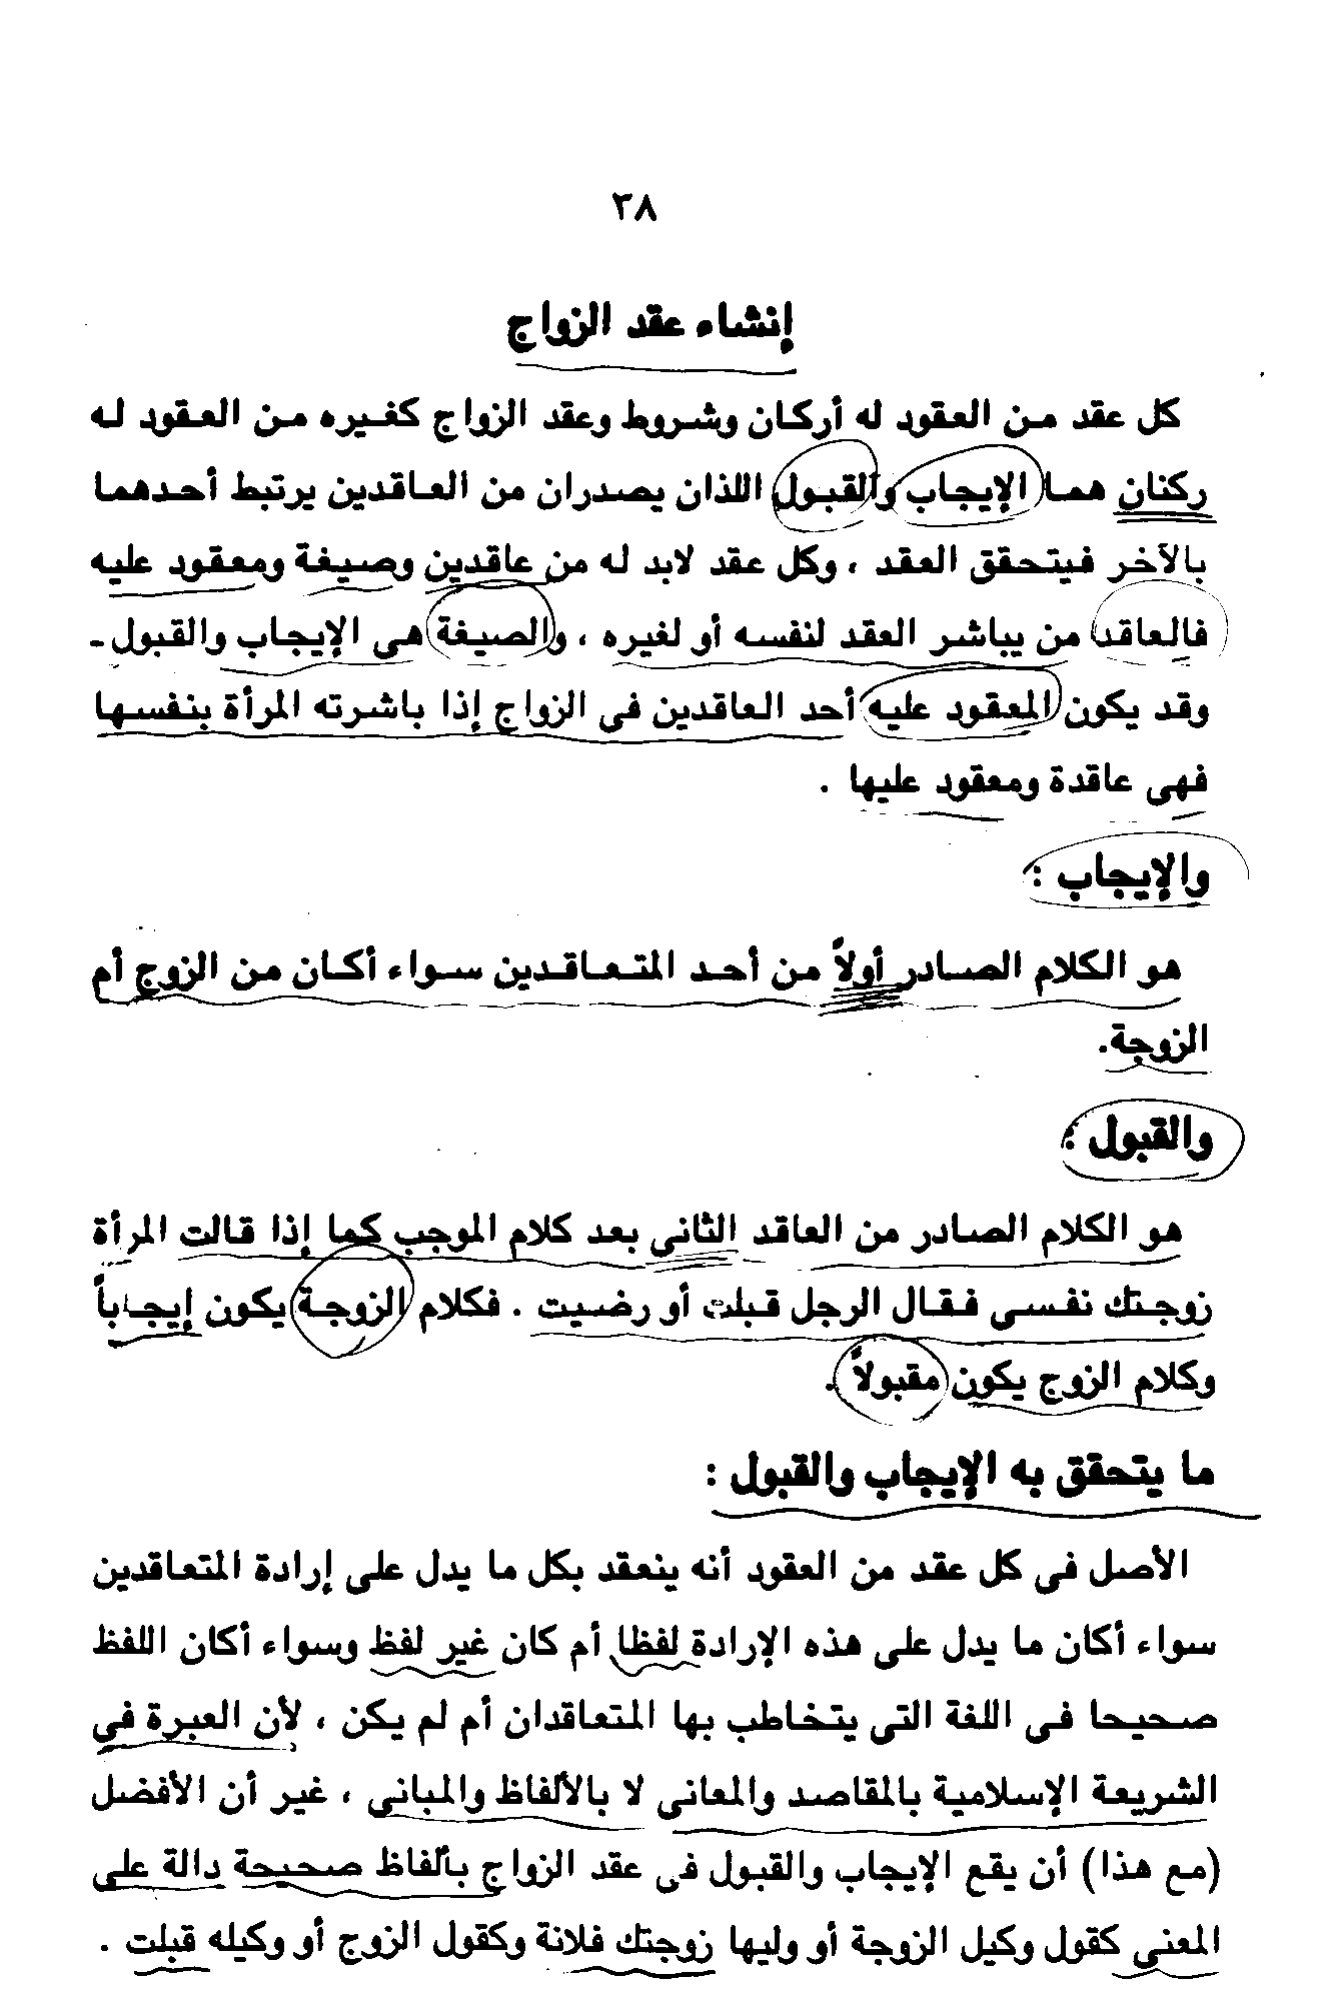 ٣٨
إنشاء عقد الزواج
كل عقد من العقود له أركان وشروط وعقد الزواج كغيره من العقود له
ركنان هما الإيجاب والقبول اللذان يصدران من العاقدين يرتبط أحدهما
بالآخر فيتحقق العقد ، وكل عقد لابد له من عاقدين وصيغة ومعقود عليه
فالعاقد من يباشر العقد لنفسه أو لغيره ، والصيغة هى الإيجاب والقبول -
وقد يكون المعقود عليه أحد العاقدين فى الزواج إذا باشرته المرأة بنفسها
فهى عاقدة ومعقود عليها .
والإيجاب :
هو الكلام الصادر أولاً من أحد المتعاقدين سواء أكان من الزوج أم
الزوجة.
والقبول :
هو الكلام الصادر من العاقد الثانى بعد كلام الموجب كما إذا قالت المرأة
زوجتك نفسى فقال الرجل قبلت أو رضيت . فكلام الزوجة يكون إيجاباً
وكلام الزوج يكون مقبولاً .
ما يتحقق به الإيجاب والقبول :
الأصل فى كل عقد من العقود أنه ينعقد بكل ما يدل على إرادة المتعاقدين
سواء أكان ما يدل على هذه الإرادة لفظا أم كان غير لفظ وسواء أكان اللفظ
صحيحا فى اللغة التى يتخاطب بها المتعاقدان أم لم يكن ، لأن العبرة في
الشريعة الإسلامية بالمقاصد والمعانى لا بالألفاظ والمبانى ، غير أن الأفضل
(مع هذا) أن يقع الإيجاب والقبول فى عقد الزواج بألفاظ صحيحة دالة على
المعنى كقول وكيل الزوجة أو وليها زوجتك فلانة وكقول الزوج أو وكيله قبلت .